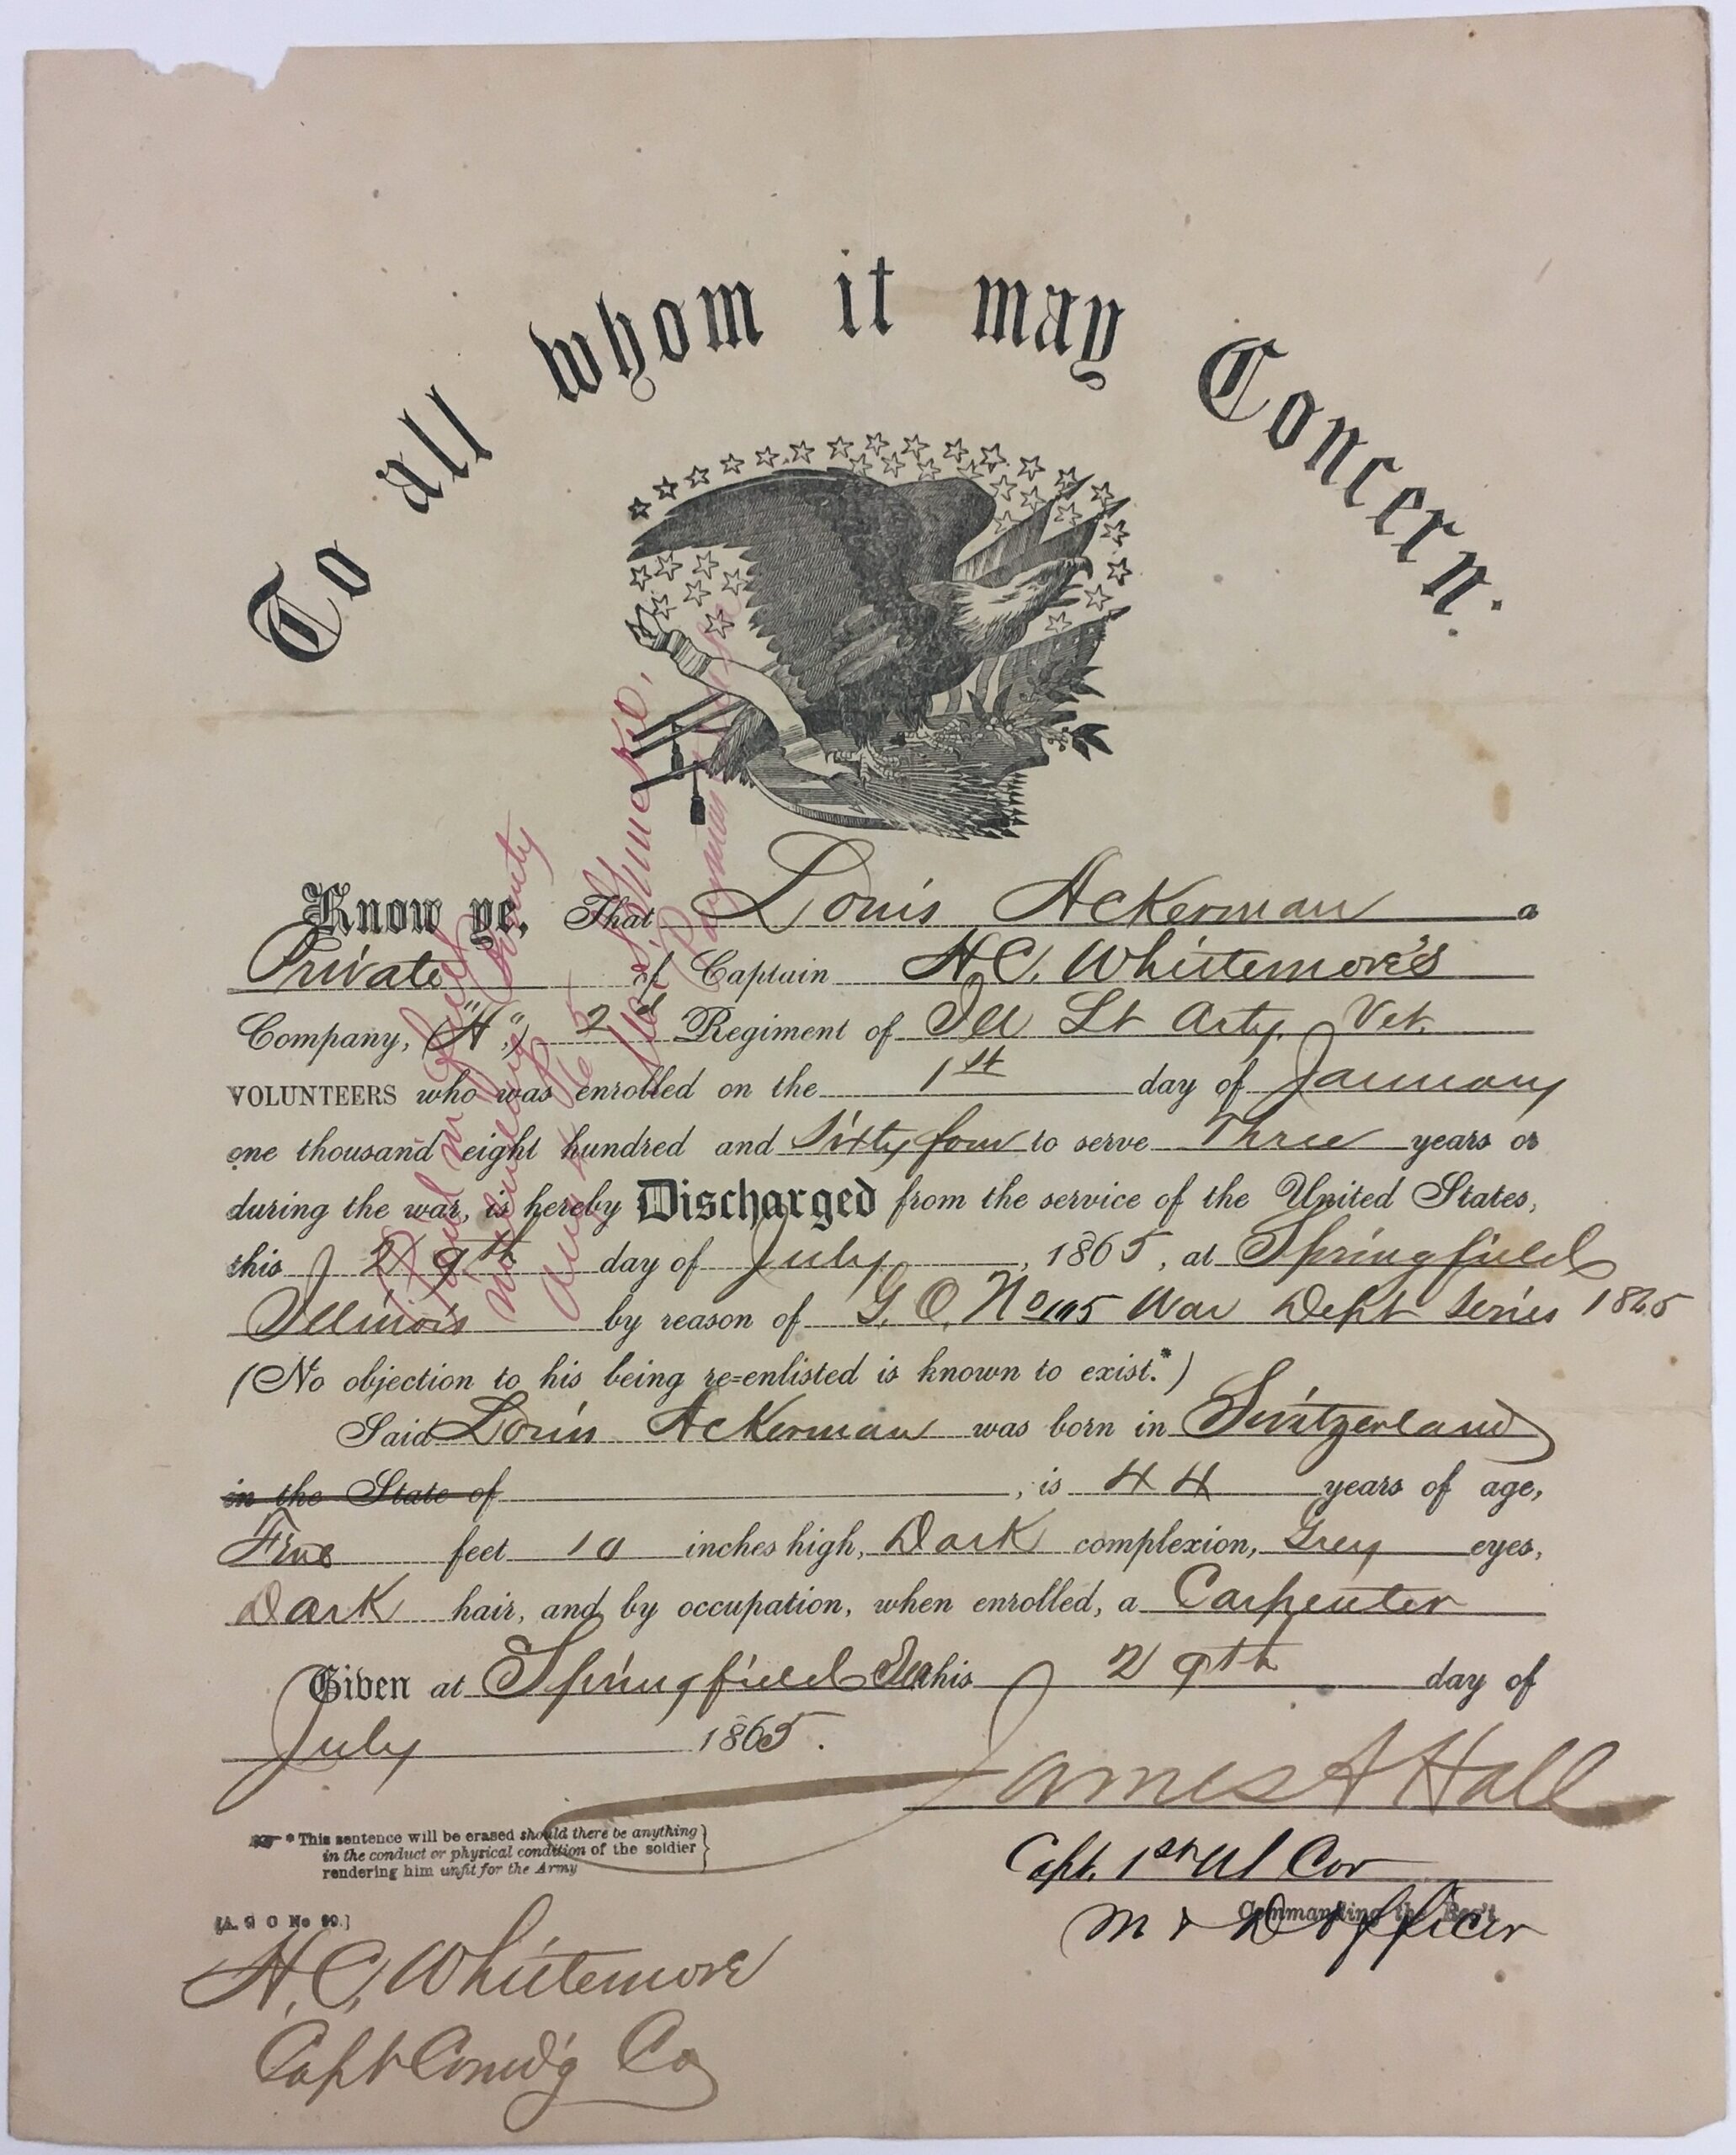 To all whom it may Concern.
Know ye, That Louis Ackerman a
Private of Captain H.C. Whittemore's
Company, ("H",) 2d Regiment of Ill Lt Arty. Vet.
VOLUNTEERS who was enrolled on the 1st day of January
one thousand eight hundred and Sixty four to serve Three years or
during the war, is hereby Discharged from the service of the United States,
this 29th day of July, 1865, at Springfield
Illinois by reason of G.O. No 105 War Dept Series 1865
(No objection to his being re-enlisted is known to exist.*)
Said Louis Ackerman was born in Switzerland
in the State of , is 44 years of age,
Five feet 10 inches high, Dark complexion, Grey eyes,
Dark hair, and by occupation, when enrolled, a Carpenter
Given at Springfield Ill this 29th day of
July 1865.
James A Hall
* This sentence will be erased should there be anything
in the conduct or physical condition of the soldier
rendering him unfit for the Army
Capt. 1st Ul Cav
Commanding the Reg't
M & D Officer
[A. G O No 99.]
H.C. Whittemore
Capt Comd'g Co
Paid in full